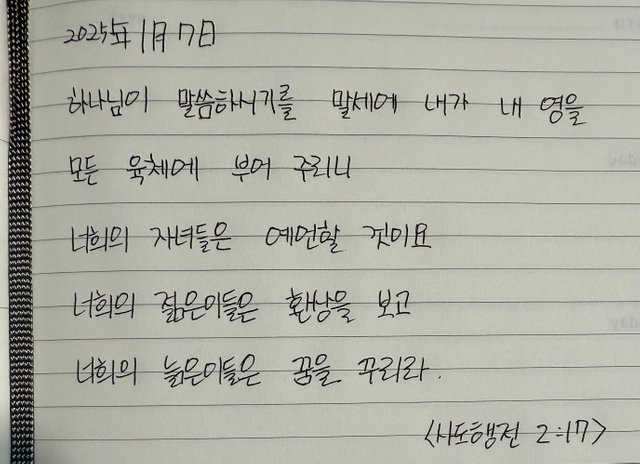 2025年 1月 7日
하나님이 말씀하시기를 말세에 내가 내 영을
모든 육체에 부어 주리니
너희의 자녀들은 예언할 것이요
너희의 젊은이들은 환상을 보고
너희의 늙은이들은 꿈을 꾸리라.
<사도행전 2:17>